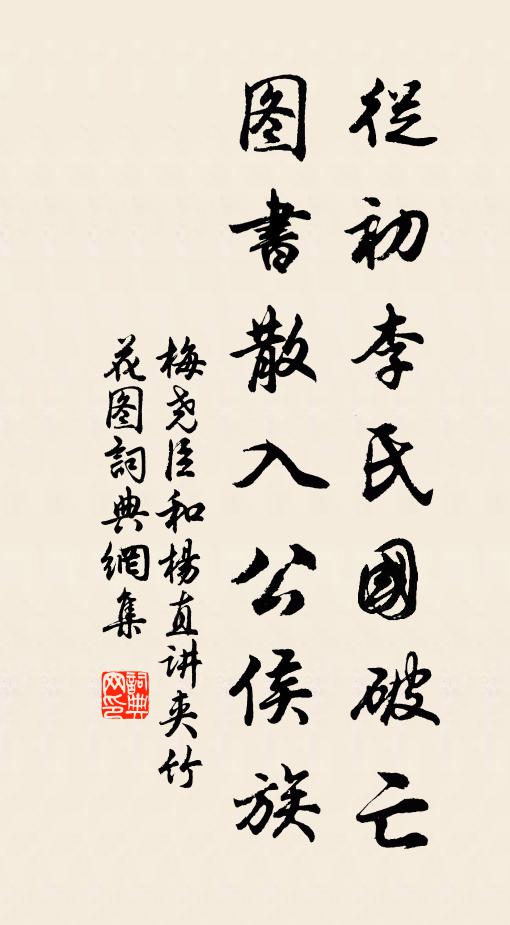 從初李氏國破亡
图書散入公侯族
梅尧臣和楊直讲夹竹
花图詞典網集
詞典网印